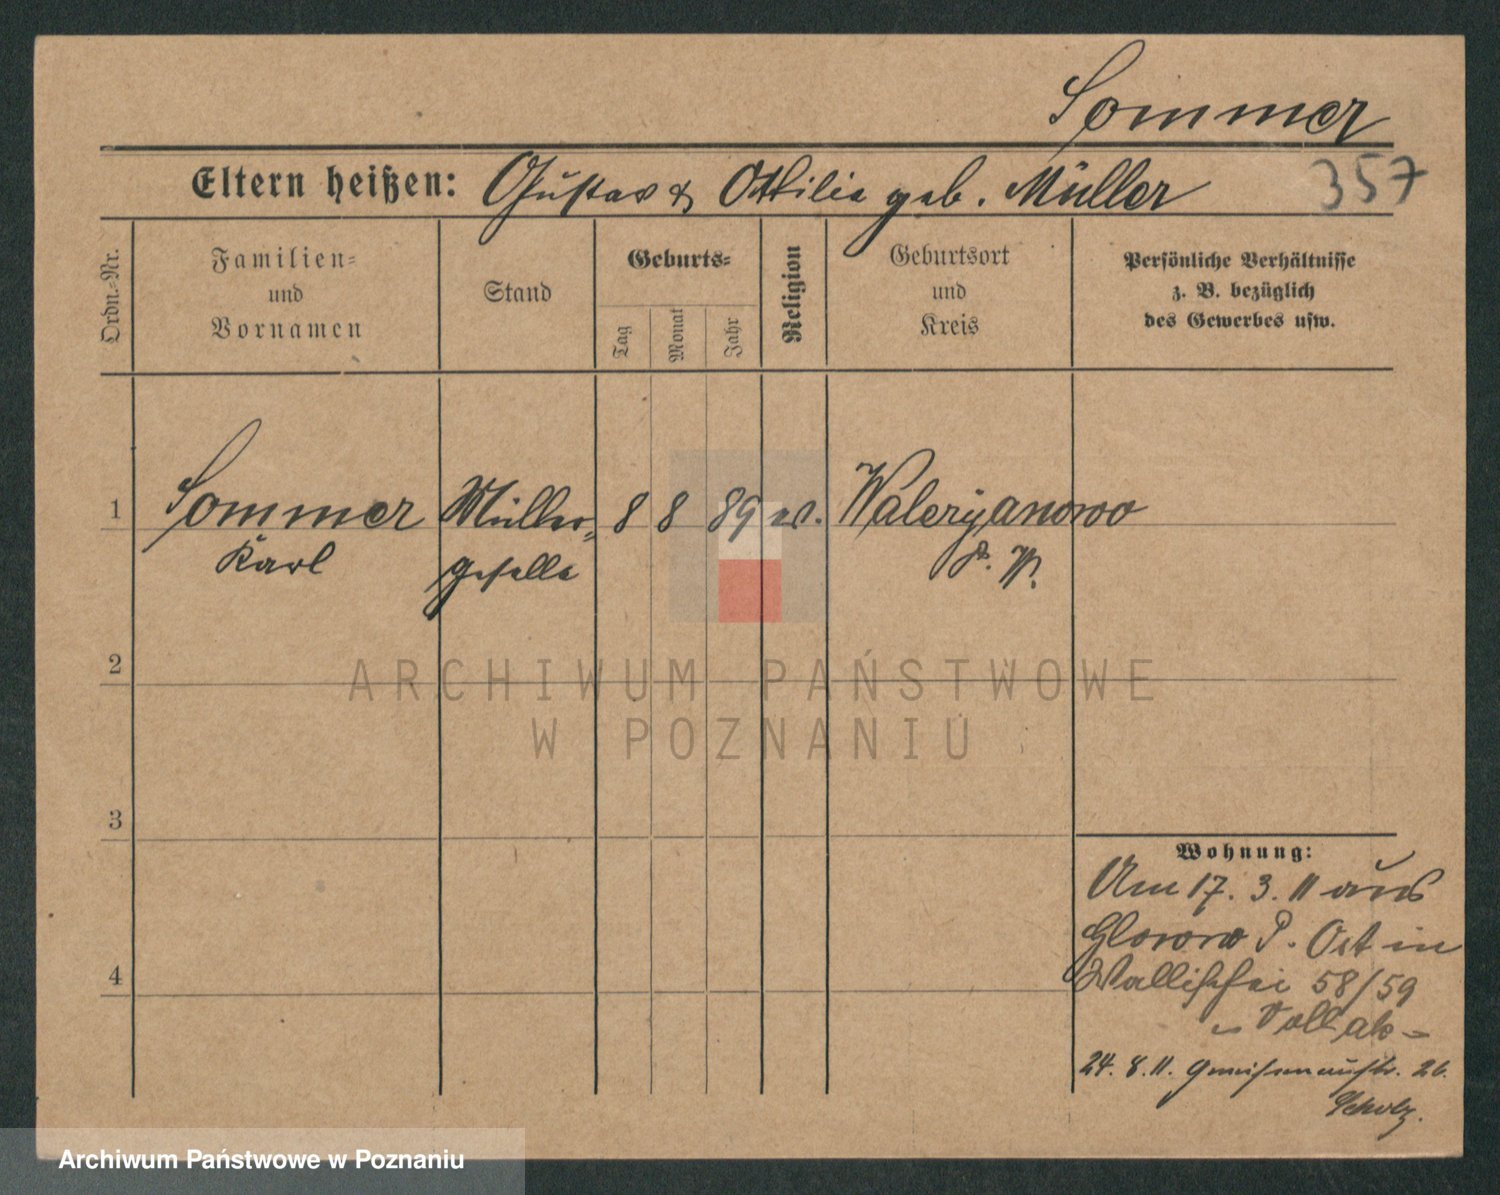 Sommer
Eltern heißen: Gustav & Ottilie geb. Müller 357
Ordn.-Nr.
Familien-
und
Vornamen
Stand
Geburts-
Tag
Monat
Jahr
Religion
Geburtsort
und
Kreis
Persönliche Verhältnisse
z. B. bezüglich
des Gewerbes usw.
1 Sommer Müller- 8 8 89 ev. Waleryanowo
Karl geselle
2
ARCHIWUM PAŃSTWOWE
W POZNANIU
3
4
Wohnung:
Am 17. 3. 11 aus
Glowno P. Ost in
Wallischei 58/59
24. 8. 11. Gneisenaustr. 26.
Scholz.
Archiwum Państwowe w Poznaniu